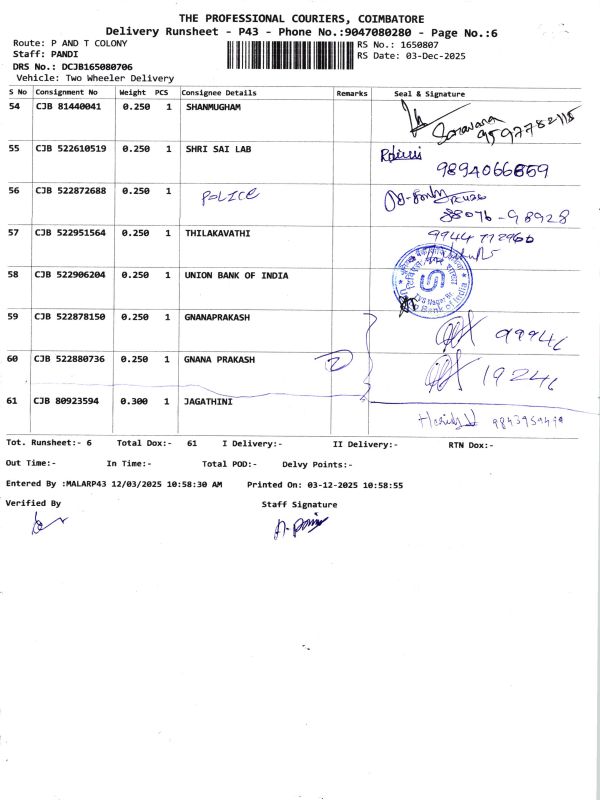 THE PROFESSIONAL COURIERS, COIMBATORE
Delivery Runsheet - P43 - Phone No.:9047080280 - Page No.:6
Route: P AND T COLONY RS No.: 1650807
Staff: PANDI RS Date: 03-Dec-2025
DRS No.: DCJB165080706
Vehicle: Two Wheeler Delivery
S No Consignment No Weight PCS Consignee Details Remarks Seal & Signature
54 CJB 81440041 0.250 1 SHANMUGHAM
Saravana
9597782115
55 CJB 522610519 0.250 1 SHRI SAI LAB
9894066659
56 CJB 522872688 0.250 1 POLICE
38076-98928
57 CJB 522951564 0.250 1 THILAKAVATHI
9944772960
58 CJB 522906204 0.250 1 UNION BANK OF INDIA
Bank of India
59 CJB 522878150 0.250 1 GNANAPRAKASH
99946
60 CJB 522880736 0.250 1 GNANA PRAKASH 2
19246
61 CJB 80923594 0.300 1 JAGATHINI
Tot. Runsheet:- 6 Total Dox:- 61 I Delivery:- II Delivery:- RTN Dox:-
Out Time:- In Time:- Total POD:- Delvy Points:-
Entered By :MALARP43 12/03/2025 10:58:30 AM Printed On: 03-12-2025 10:58:55
Verified By Staff Signature